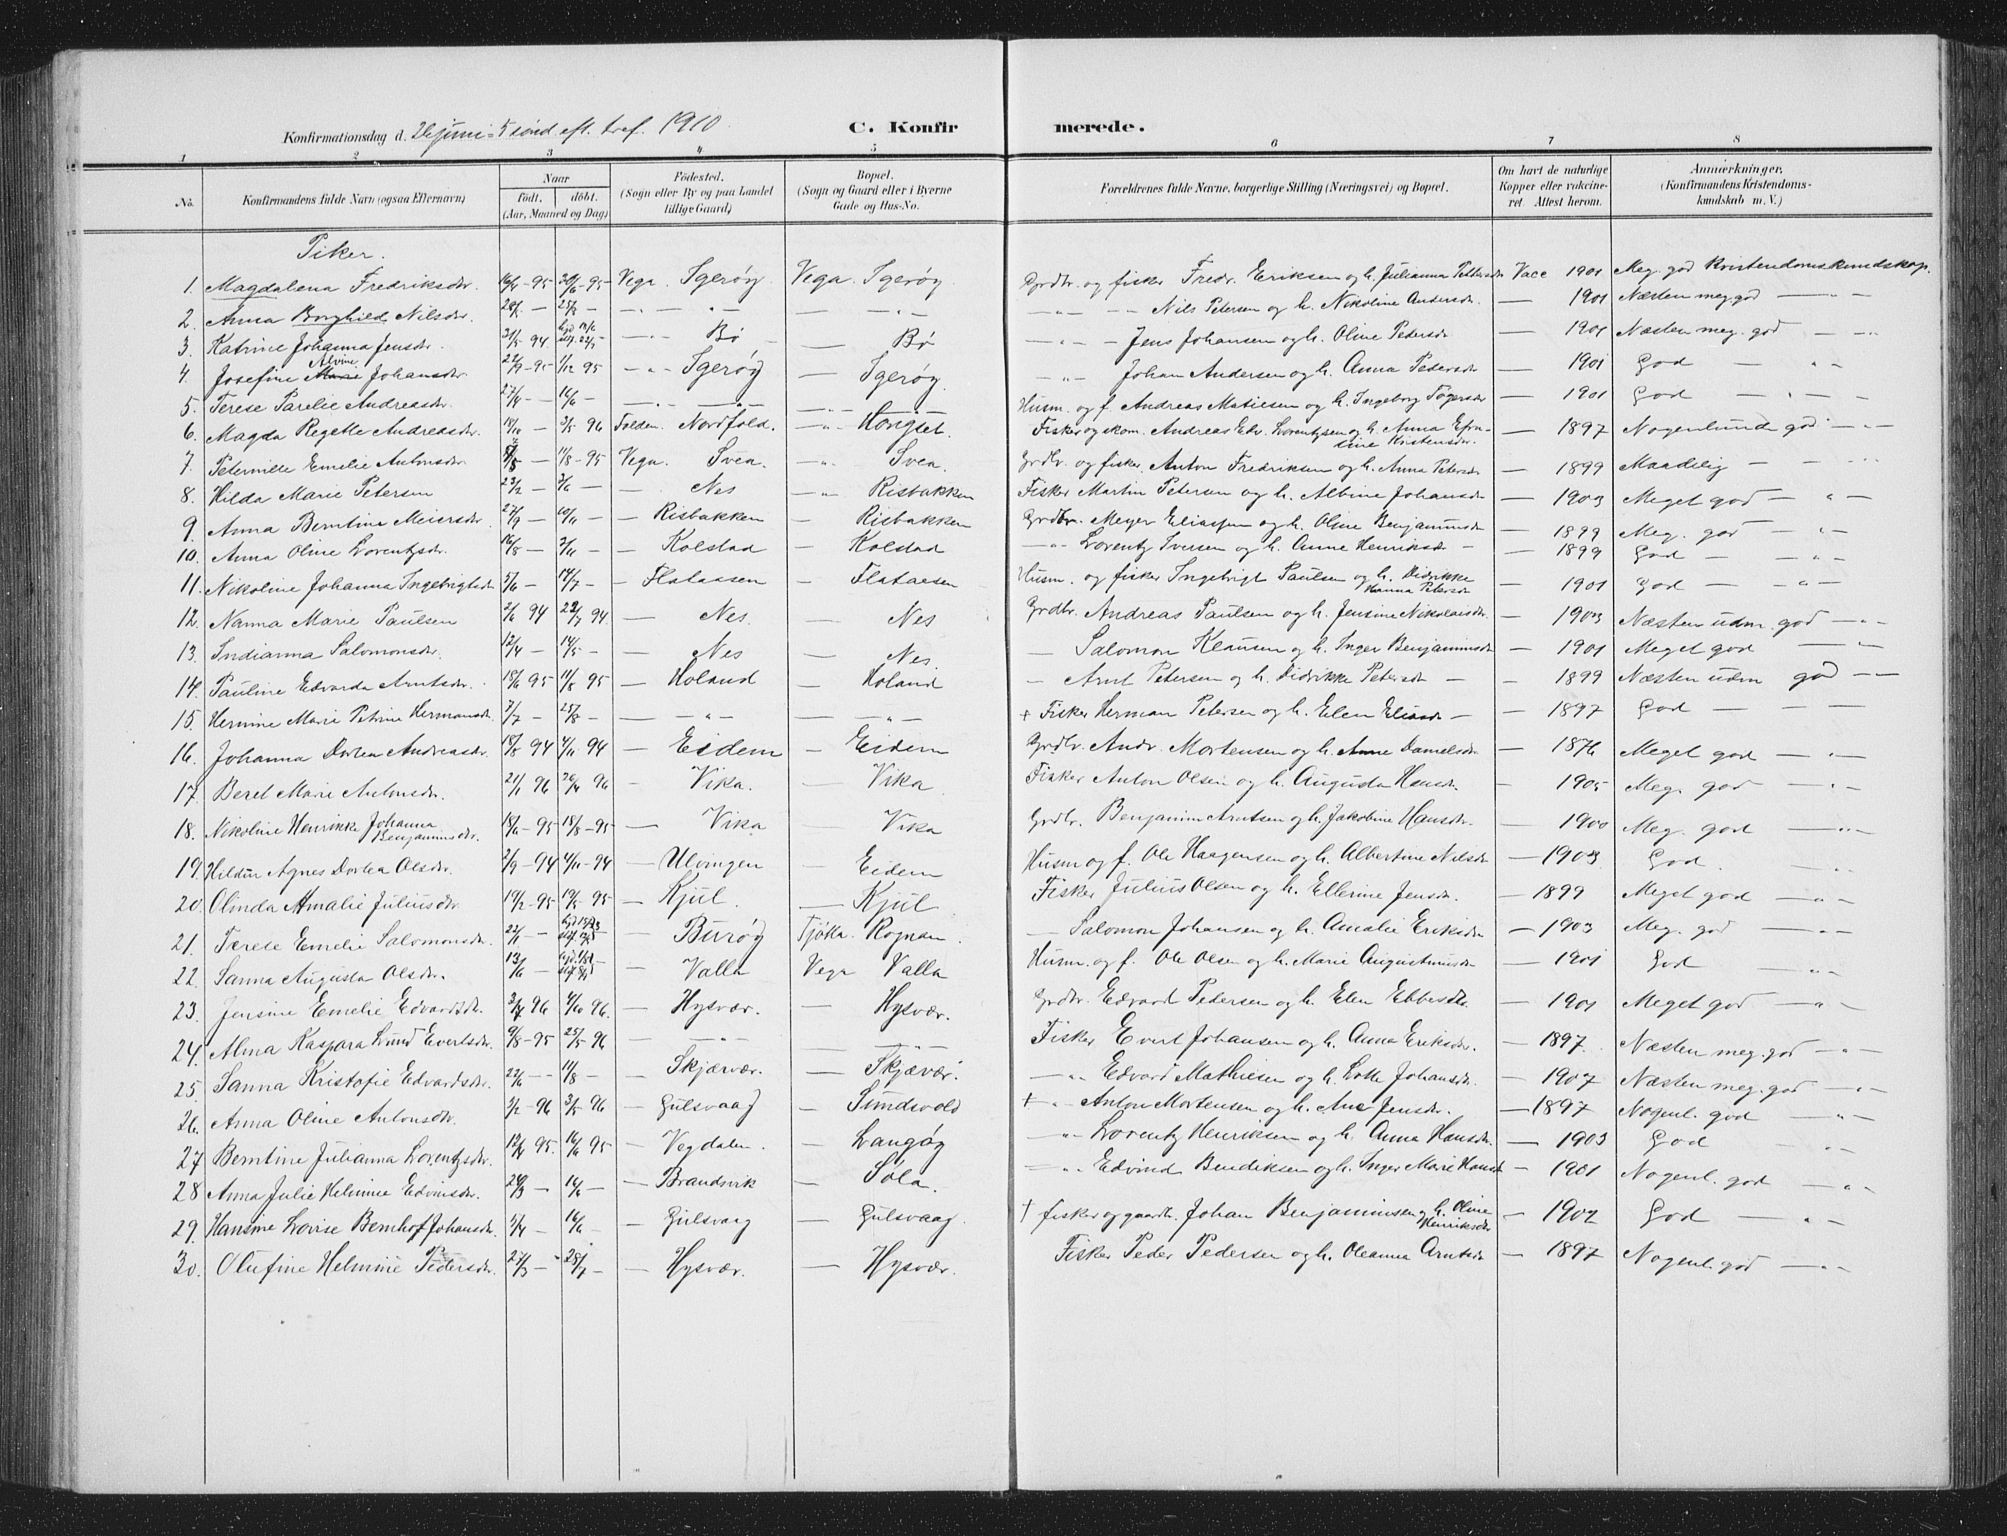 Konfirmationsdag d. 26 juni = 5 sönd eft. tref. 1910. C. Konfir merede.
1 2 3 4 5 6 7 8
No. Konfirmandens fulde Navn (ogsaa Efternavn) Naar födt. döbt. (Aar, Maaned og Dag) Födested. (Sogn eller By og paa Landet tillige Gaard) Bopæl. (Sogn og Gaard eller i Byerne Gade og Hus-No. Forældrenes fulde Navne, borgerlige Stilling (Næringsvei) og Bopæl. Om havt de naturlige Kopper eller vakcineret. Attest herom. Anmærkninger. (Konfirmandens Kristendomskundskab m. V.)
Piker.
1. Magdalena Fredriksdr. 95 95 Vega. Igerøy Vega. Igerøy. Grdbr. og fisker Fredr. Eriksen og h. Julianna Pettersdr Vacc 1901 Meg. god Kristendomskundskap.
2. Anna Borghild Nilsdr. — — " — Nils Petersen og h. Nikoline Andersdr. — 1901 Næsten meg. god — " —
3. Katrine Johanna Jensdr. 31/5 94 — " — Bø — Bø — " — Jens Johansen og h. Oline Pedersdr — 1901 Næsten meg. god — "
4. Josefine Alvine Johansdr. 22/9 - 95 1/12 95 — " — Igerøy — Igerøy. — " — Johan Andersen og h. Anna Pedersdr — 1901 God — "
5. Terese Parelie Andreasdr. 27/4 — 16/6 — — " — Husm. og f. Andreas Matiesen og h. Ingeborg Tögersdr — 1901 God — " —
6. Magda Regette Andreasdr. 3/5 96 Folden. Nordfold. — " — Hongset. Fisker og skom. Andreas Edv. Lorentzsen og h. Anna Efraline Kristensdr. — 1897 Nogenlunde god — " —
7. Peternille Emelie Antonsdr. 11/8 - 95 Vega. Sven. — " — Sven Grdbr. og fisker Anton Fredriksen og h. Anna Petersdr — 1899 Maadelig — "
8. Hilda Marie Petersen 23/2 — 3/6 — — Nes — " — Risbakken Fisker Martin Petersen og h. Albine Johansdr — 1903 Meget god — " —
9. Anna Berntine Meiersdr. 27/9 — 10/11 — — Risbakken — Risbakken Grdbr. Meyer Eliassen og h. Oline Benjaminsdr — 1899 Meg. god — "
10. Anna Oline Lorentzsdr. 16/8 — 3/11 — — Kolstad — Kolstad — " — Lorentz Iversen og h. Anne Henriksdr — — 1899 God — " —
11. Nikoline Johanna Ingebrigtsdr 5/6 — 14/7 — — Flataasen — Flataasen Husm. og fisker Ingebrigt Paulsen og h. Didrikke Hanna Petersdr — 1901 God — " —
12. Nanna Marie Paulsen 2/6 94 22/7 94 — Nes. — Nes Grdbr. Andreas Paulsen og h. Jensine Nikolaisdr. — 1903 Næsten udm. god — " —
13. Indianna Salomonsdr. 12/4 — 14/5 — — Nes — Nes. — Salomon Klausen og h. Inger Benjaminsdr — 1901 Meget god — "
14. Pauline Edvarda Arntsdr. 15/6 95 11/8 95 — Holand — Holand — Arnt Petersen og h. Didrikke Petersdr — — 1899 Næsten udm god — —
15. Hermine Marie Petrine Hermansdr. 7/7 — 25/8 — — " — " — + Fisker Herman Petersen og h. Elen Eliasdr — — 1897 God — — " —
16. Johanna Dortea Andreasdr. 18/8 94 4/11 94 — Eidem — Eidem Grdbr. Andr. Mortensen og h. Anne Danielsdr. — 1876 Meget god — "
17. Beret Marie Antonsdr. 21/1 96 26/4 96 — Vika. — Vika Fisker Anton Olsen og h. Augusta Hansdr. — 1905 Meg. god — " —
18. Nikoline Henrikke Johanna Benjaminsdr. 18/6 - 95 18/8 - 95 — Vika Vika Grdbr. Benjamin Arntsen og h. Jakobine Hansdr. — 1900 Meg. god — " —
19. Hildur Agnes Dortea Olsdr. 2/9 - 94 4/11 - 94 — Ulvingen — Eidem Husm og f. Ole Haagensen og h. Albertine Nilsdr — 1903 God. "
20. Olinda Amalie Juliusdr. 19/2 - 95 19/5 - 95 — Kjul. — Kjul Fisker Julius Olsen og h. Ellerine Jensdr. — 1899 Meget god — " —
21. Terese Emelie Salomonsdr. — Burøy Tjøtta. Rognan. — Salomon Johansen og h. Amalie Eriksdr. — 1903 Meg. god — " —
22. Sanna Augusta Olsdr. 13/6 — — Valla Vega Valla Husm. og f. Ole Olsen og h. Marie Augustinusdr — 1901 God " —
23. Jensine Emelie Edvardsdr. 96 4/10 96. — Hysvær. — Hysvær. Grdbr. Edvard Pedersen og h. Elen Ebbesdtr. — 1901 Meget god — "
24. Alma Kaspara Lund Evertsdr. 9/8 - 95 25/5 96 — " — — " — Fisker Evert Johansen og h. Anna Eriksdr. — 1897. Næsten meg. god — " —
25. Sanna Kristofie Edvardsdr. 22/6 — 11/8 — — Skjærvær. — Skjævær. — " Edvard Mathiesen og h. Lotte Johansdr. — 1907 Næsten meg. god — " —
26. Anna Oline Antonsdr. 3/2 - 96 3/5 96 — Gulsvaag — Sundsvold + " Anton Mortensen og h. Ane Jensdr. — 1897 Nogenl. god — " —
27 Berntine Julianna Lorentzsdr. 12/4 95. 16/6 95 — Vegdalen. — Langøy — " Lorentz Henriksen og h. Anna Hansdr. — 1903 God — "
28 Anna Julie Helmine Edvinsdr. — 16/6 — — Brandsvik — Sola. — " Edvind Bendiksen og h. Inger Marie Hansdr — 1901 Nogenl. god — " —
29. Hansine Lovise Bernhof Johansdr. 5/4 — 16/6 — Gulsvaag — Gulsvaag. + fisker og gaardb. Johan Benjaminsen og h. Oline Henriksdr — 1902 God — " —
30. Olufine Helmine Pedersdr. 27/3 — 28/7 — — Hysvær. — Hysvær. Fisker Peder Pedersen og h. Oleanna Arntsdr — 1897 Nogenl. god — " —